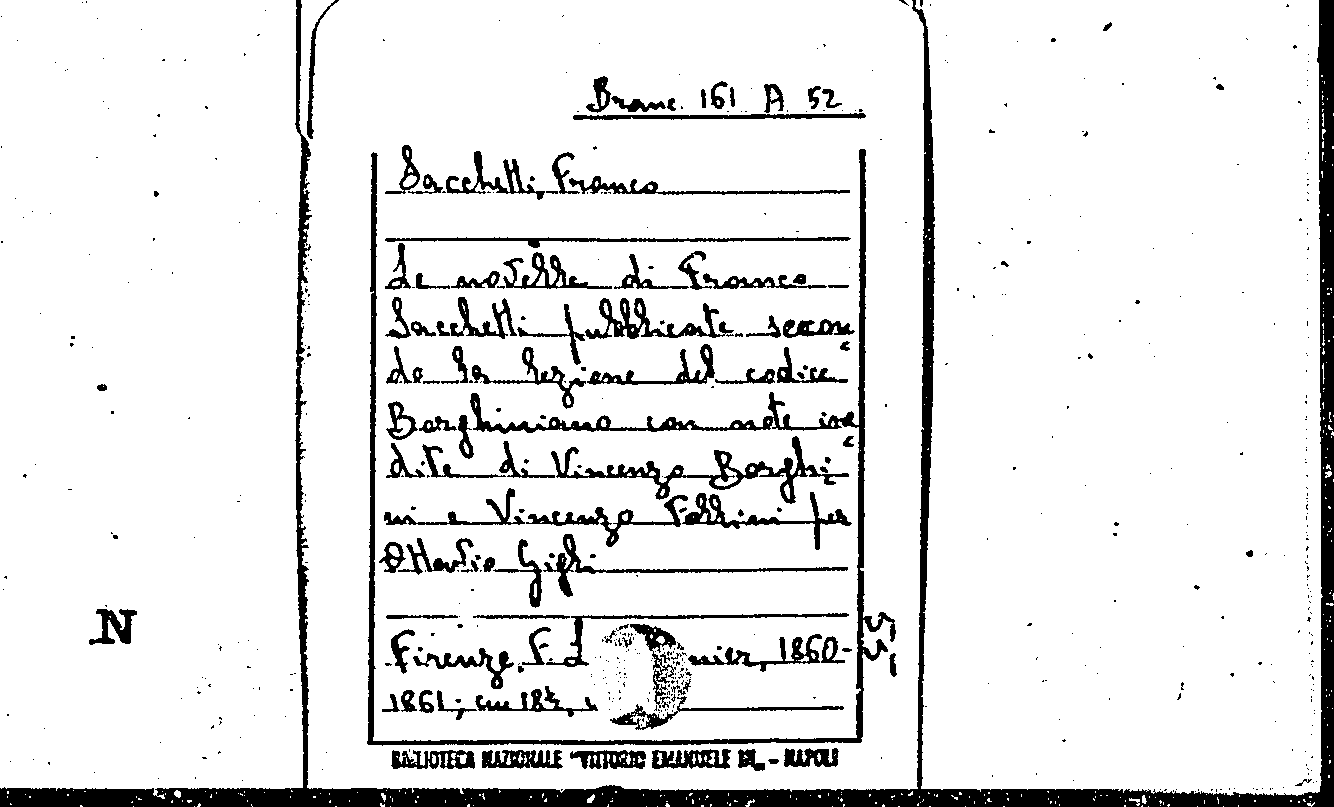 Branc. 161 A 52
Sacchetti, Franco
Le novelle di Franco
Sacchetti pubblicate secon
do la lezione del codice
Borghiniano con note ine
dite di Vincenzo Borghi
ni e Vincenzo Follini per
Ottavio Gigli
Firenze, F. L
nier, 1860-
1861; cm 18½,
BIBLIOTECA NAZIONALE "VITTORIO EMANUELE III" - NAPOLI
N